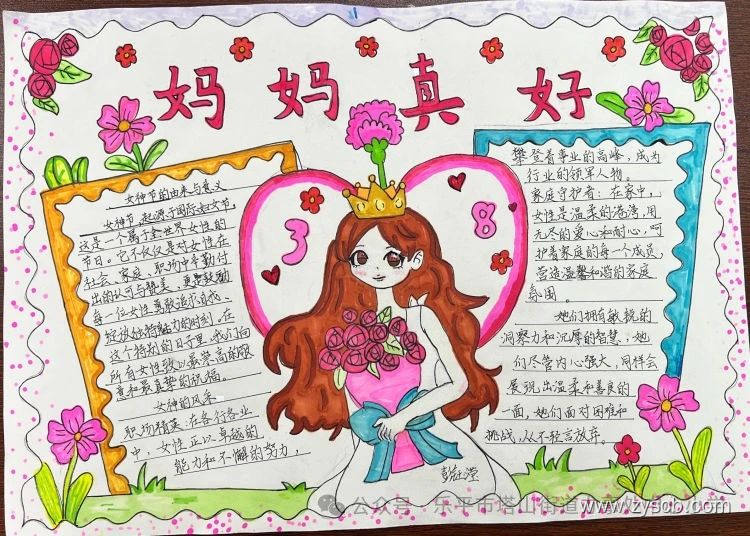 妈妈真好
38
女神节的由来与意义
女神节,起源于国际妇女节,
这是一个属于全世界女性的
节日。它不仅仅是对女性在
社会、家庭、职场中辛勤付
出的认可与赞美,更是鼓励
每一位女性勇敢追求自我、
绽放独特魅力的时刻。在
这个特别的日子里,我们向
所有女性致以最崇高的敬
意和最真挚的祝福。
女神的风采
职场精英:在各行各业
中,女性正以卓越的
能力和不懈的努力,
攀登着事业的高峰,成为
行业的领军人物。
家庭守护者:在家中,
女性是温柔的港湾,用
无尽的爱心和耐心,呵
护着家庭的每一个成员,
营造温馨和谐的家庭
氛围。
她们拥有敏锐的
洞察力和沉厚的智慧,她
们尽管内心强大,同样会
展现出温柔和善良的
一面,她们面对困难和
挑战,从不轻言放弃。
公众号·乐平市塔山街道
www.zyscb.com